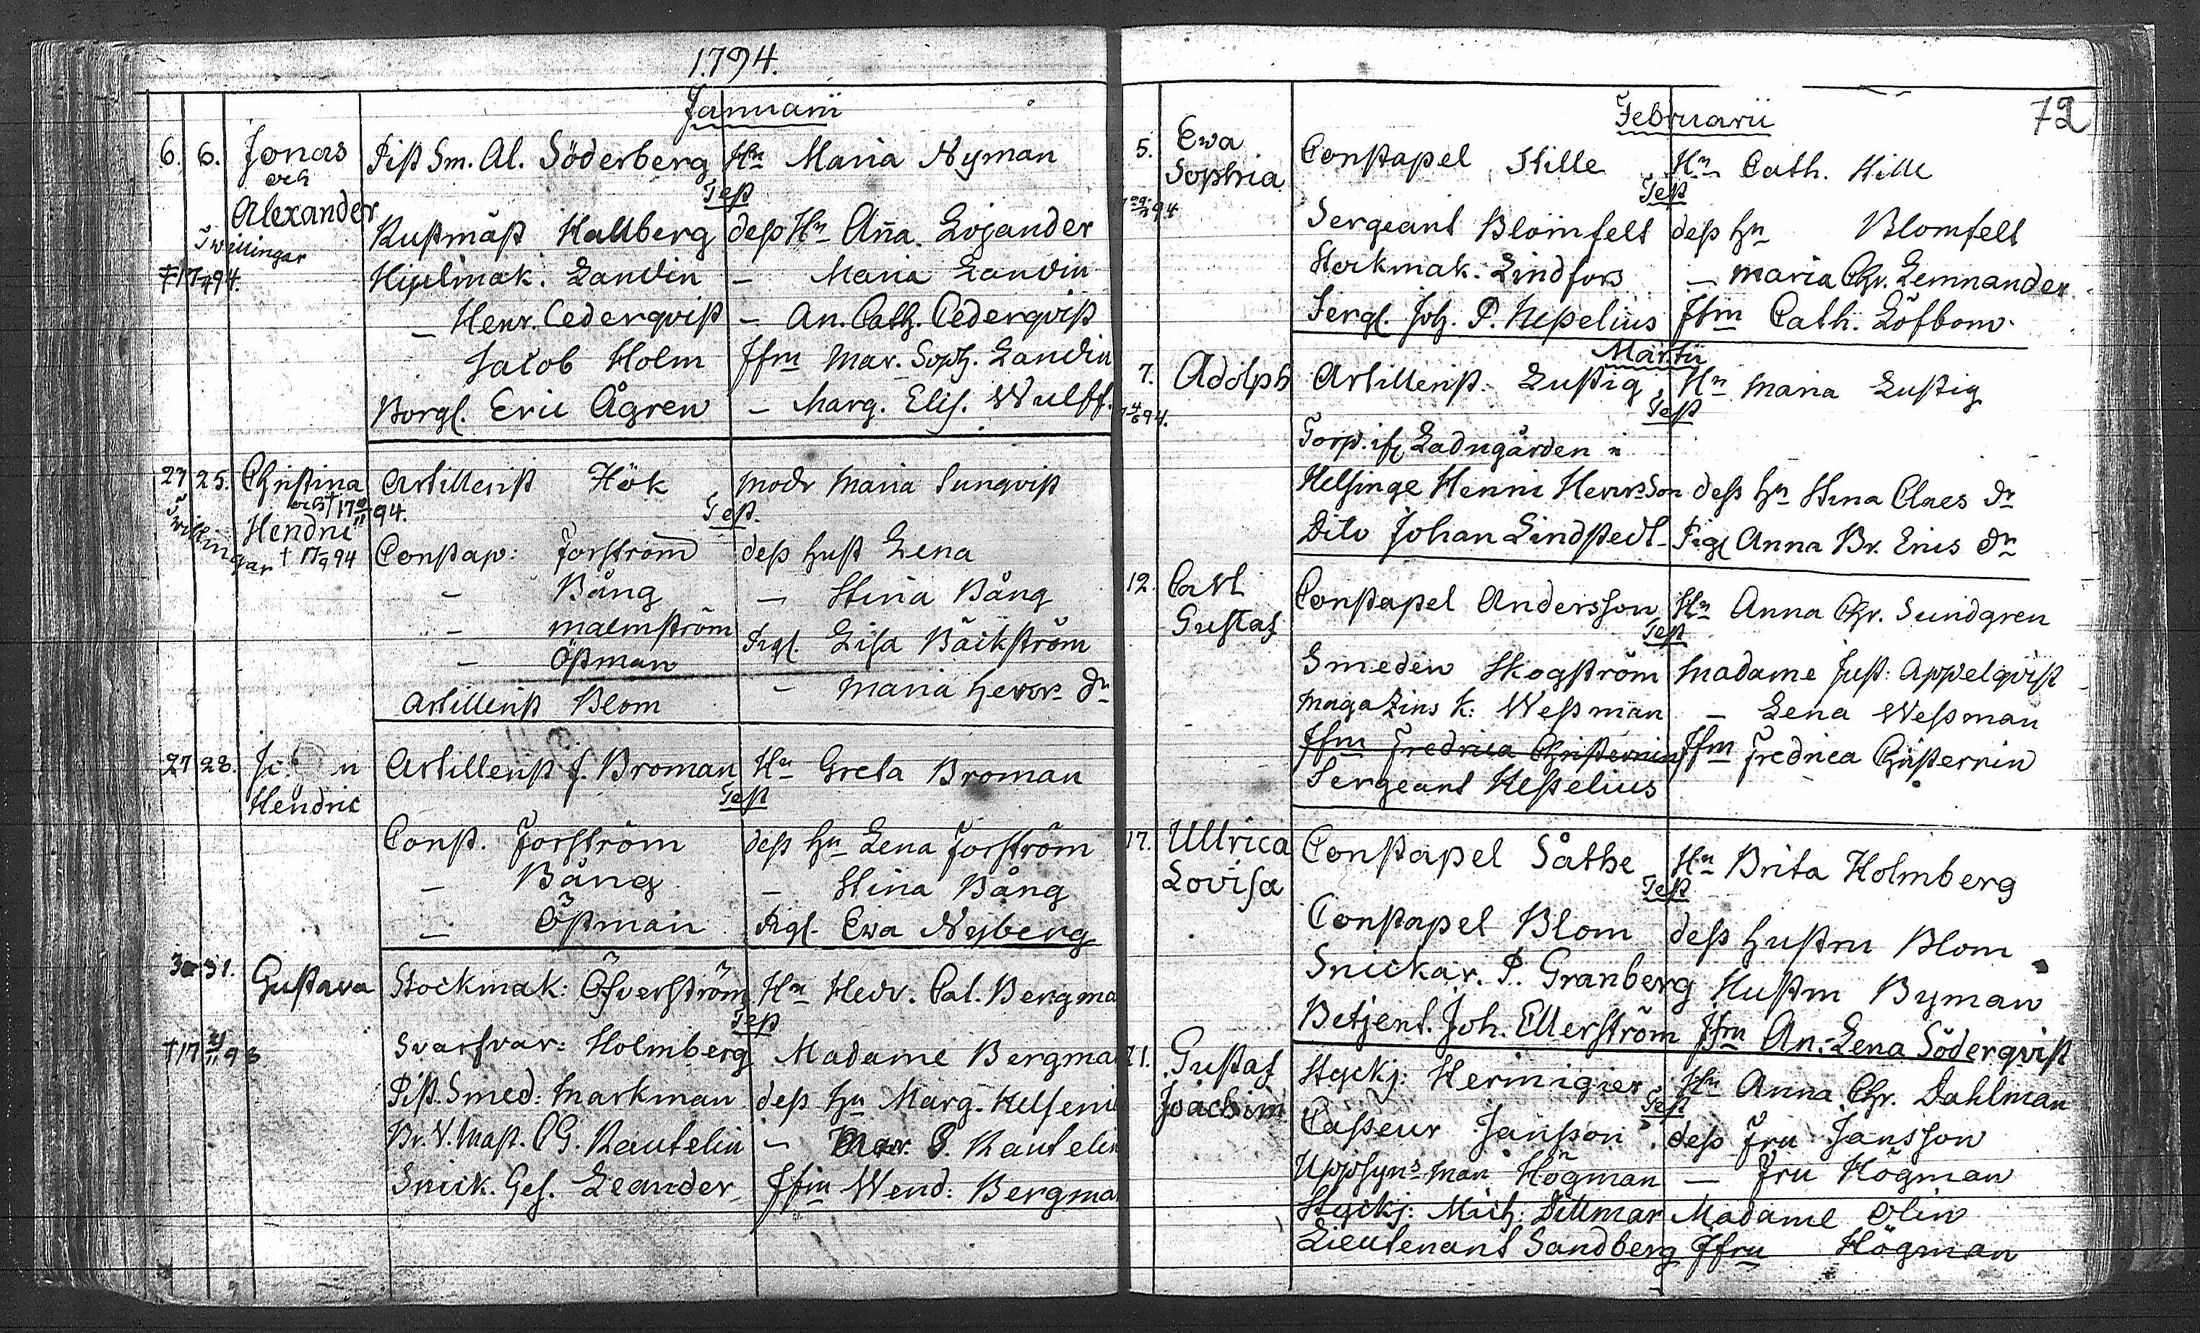 1794.
Januarii
6. 6. Jonas Pist Sm. Al. Söderberg Hn Maria Nyman
och
Test
Alexander
Rustmäst Hallberg dess Hn Aña Lojander
Twillingar
Hjulmak: Landin — Maria Landin
— Henr. Cederqvist — An. Cath. Cederqvist
Jacob Holm Jfm Mar. Soph. Landin
Borgl. Eric Ågren — Marg. Elis. Wulff.
27 25. Christina Artillerist Hök modr Maria Sunqvist
och
Test.
Hendric
Twillingar
Constap: Forsström dess Hust Lena
— Bång — Stina Bång
— Malmström Pigl. Lisa Bäckström
— Östman
Artillerist Blom — Maria Henr. dr
27 28. Artillerist J. Broman Hn Greta Broman
Hendric
Test
Const. Forsström dess Hn Lena Forsström
— Bång — Stina Bång
— Östman Pigl. Ewa Nyberg
31. Gustava Stockmak: Öfverström Hn Hedv. Cal. Bergma
Test
Svarfvar: Holmberg Madame Bergma
Pist. Smed: Markman dess Hn Marg. Helseni
Br. V. Mast. C G. Rautelin — Mar. C. Rautelin
Snick. Ges. Leander Jfm Wend: Bergma
72
Februarii
5. Ewa Constapel Stille Hn Cath. Hille
Sophia
Test
Sergeant Blomfelt dess Hn Blomfelt
Stockmak. Lindfors — Maria Chr. Lemnander
Sergt. Joh. P. Hespelius Jfm Cath. Löfbom.
Martii
7. Adolph Artillerist. Lustig Hn Maria Lustig
Test
Torp. if. Ladugården i
Helsinge Henric Henrsson dess Hn Stina Claes dr
Dito Johan Lindstedt — Pigl Anna Br. Eric dr
12. Carl Constapel Andersson Hn Anna Chr. Sundgren
Gustaf
Test
Smeden Skogström Madame Just: Appelqvist
Magazins K: Wessman — Lena Wessman
Jfm Fredrica Christernin Jfm Fredrica Christernin
Sergeant Hespelius
17. Ullrica Constapel Såthe Hn Brita Holmberg
Lovisa
Test
Constapel Blom dess Hustru Blom
Snickar. P. Granberg Hustru Byman
Betjent. Joh. Ellerström Jfru An. Lena Söderqvist
21. Gustaf Styckj: Hermigier Hn Anna Chr. Dahlman
Joachim
Test
Casseur Jansson dess Fru Jansson
Uppsyns man Högman — Fru Högman
Styckj: Mich: Dittmar Madame Olin
Lieutenant Sandberg Jfru Högman